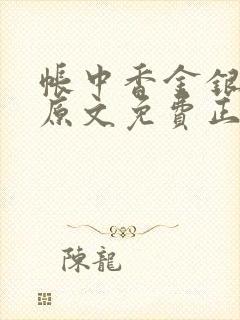 帳中香金銀
原文免費正
陳龍